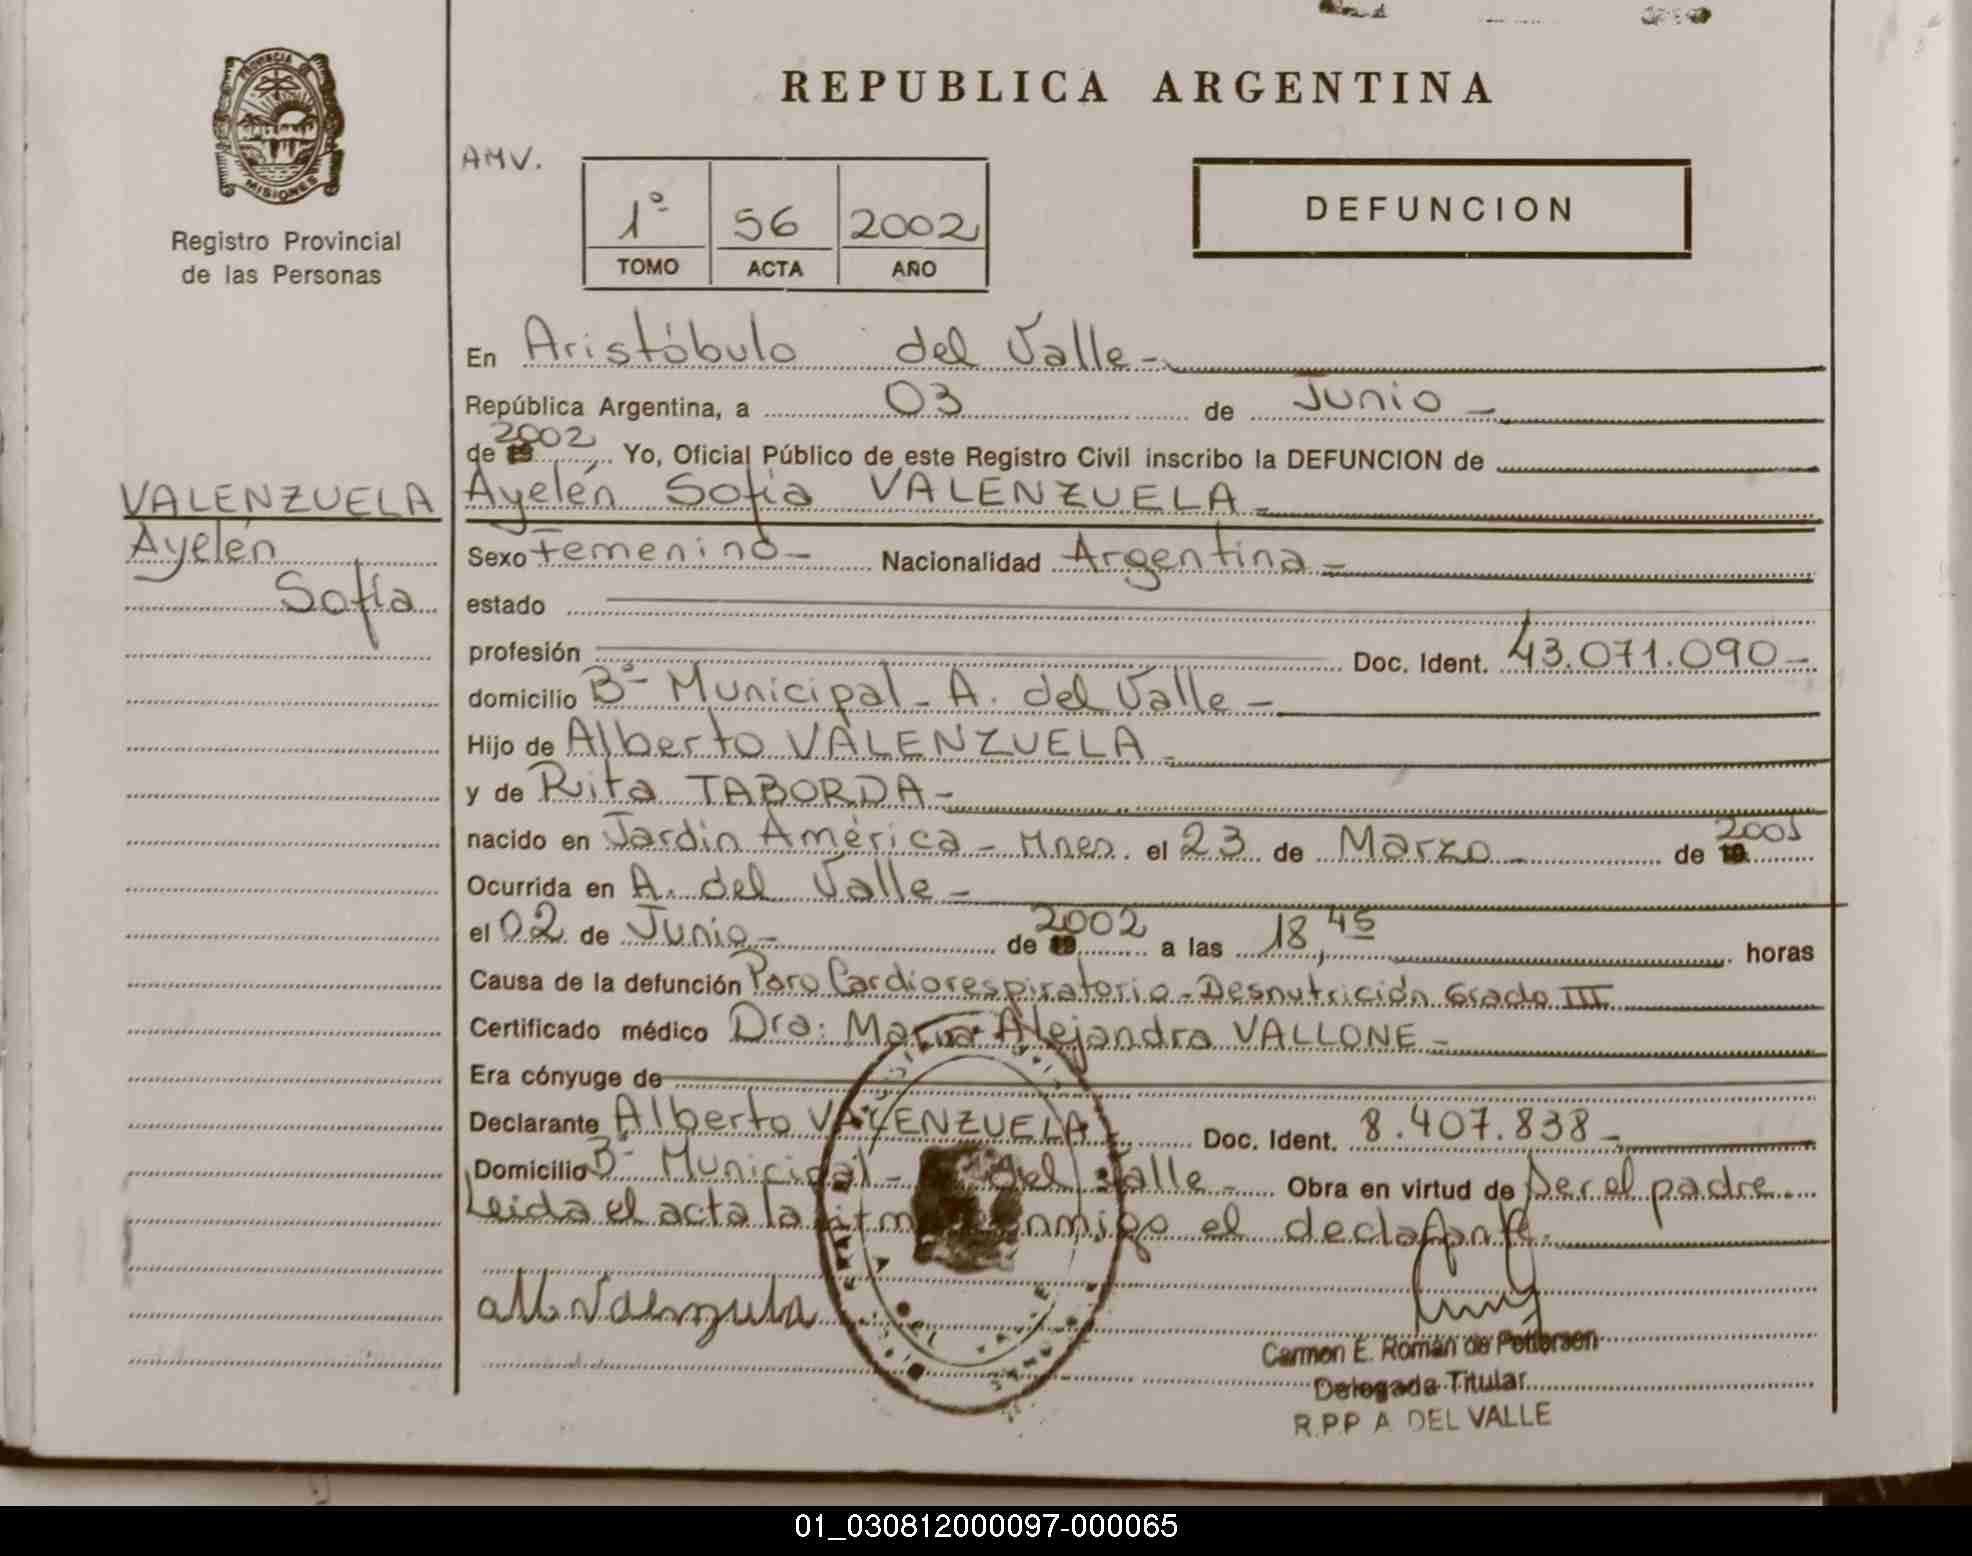 PROVINCIA DE
MISIONES
Registro Provincial
de las Personas
REPUBLICA ARGENTINA
AMV.
1º 56 2002
TOMO ACTA AÑO
DEFUNCION
En Aristóbulo del Valle-
República Argentina, a 03 de Junio -
de 2002 Yo, Oficial Público de este Registro Civil inscribo la DEFUNCION de
VALENZUELA
Ayelén
Sofía
Ayelén Sofía VALENZUELA-
Sexo Femenino- Nacionalidad Argentina-
estado
profesión Doc. Ident. 43.071.090-
domicilio Bº Municipal- A. del Valle-
Hijo de Alberto VALENZUELA-
y de Rita TABORDA-
nacido en Jardín América - Mnes. el 23 de Marzo - de 2001
Ocurrida en A. del Valle-
el 02 de Junio- de 2002 a las 18,45 horas
Causa de la defunción Paro Cardiorespiratorio-Desnutrición Grado III
Certificado médico Dra: María Alejandra VALLONE-
Era cónyuge de
Declarante Alberto VALENZUELA- Doc. Ident. 8.407.838-
Domicilio Bº Municipal- del Valle- Obra en virtud de Ser el padre
Leída el acta la firma conmigo el declarante.
Alb Valenzuela
Carmen E. Román de Pettersen
Delegada Titular
R.P.P A DEL VALLE
01_030812000097-000065